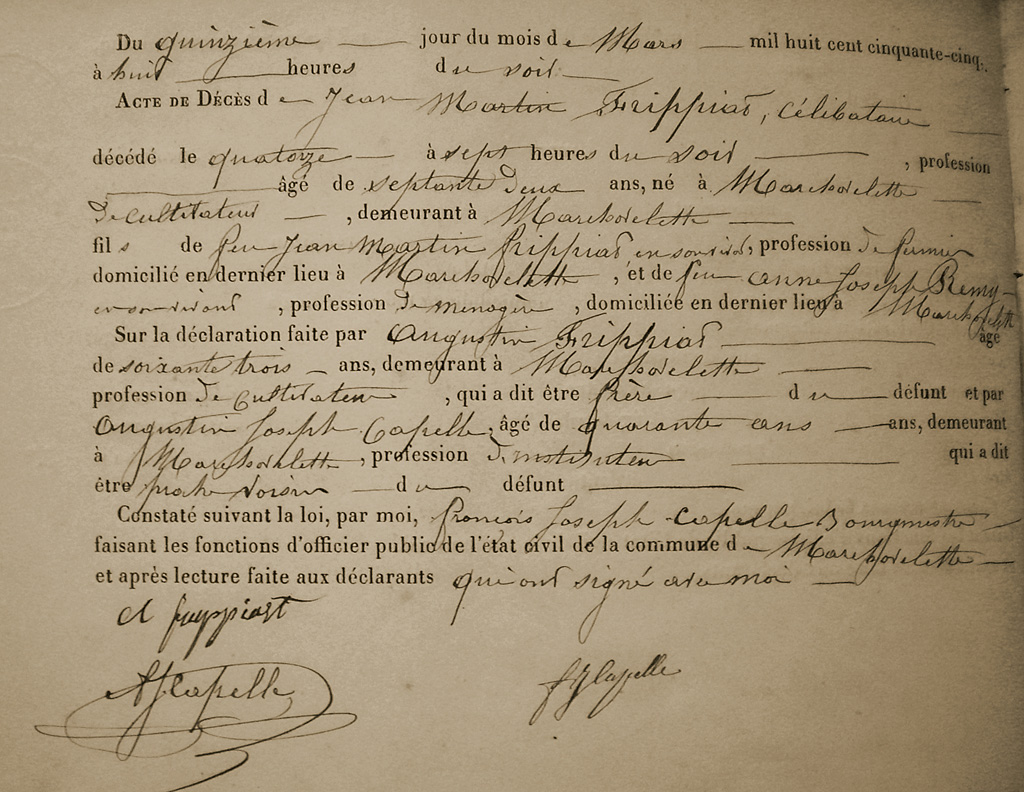 Du quinzième jour du mois de Mars mil huit cent cinquante-cinq,
à huit heures du soir
ACTE DE DÉCÈS de Jean Martin Frippiat, célibataire
décédé le quatorze à sept heures du soir , profession
âgé de septante deux ans, né à Marchovelette
de cultivateur , demeurant à Marchovelette
fils de feu Jean Martin frippiat en son vivant, profession de fermier
domicilié en dernier lieu à Marchovelette , et de feu anne Joseph Remy
en son vivant , profession de menagère , domiciliée en dernier lieu à Marchovelette
Sur la déclaration faite par Augustin Frippiat âgé
de soixante trois ans, demeurant à Marchovelette
profession de cultivateur , qui a dit être frère du défunt et par
Augustin Joseph Capelle, âgé de quarante ans ans, demeurant
à Marchovelette , profession d'instituteur qui a dit
être proche voisin du défunt
Constaté suivant la loi, par moi, françois Joseph Capelle Bourgmestre
faisant les fonctions d'officier public de l'état civil de la commune de Marchovelette
et après lecture faite aux déclarants qui ont signé avec moi
A
AJCapelle
fJCapelle